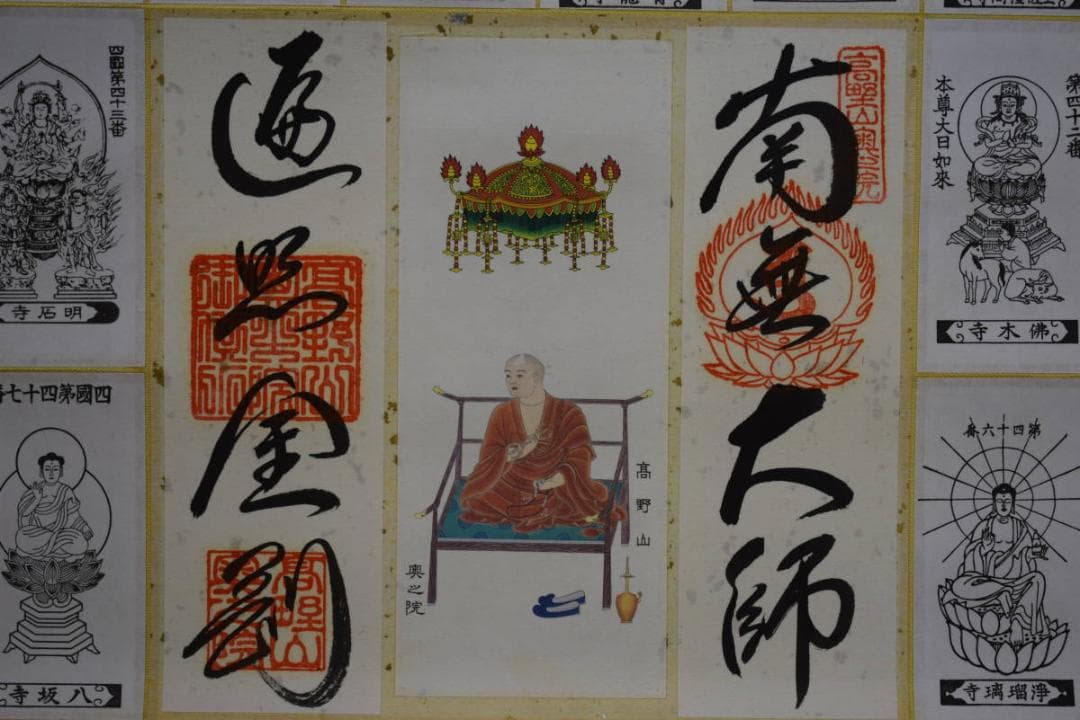 第四十二番
本尊大日如來
佛木寺
第四十六番
淨瑠璃寺
高野山奥之院
南無大師
髙野山
奥之院
遍照金剛
四國第四十三番
明石寺
四國第四十七
八坂寺